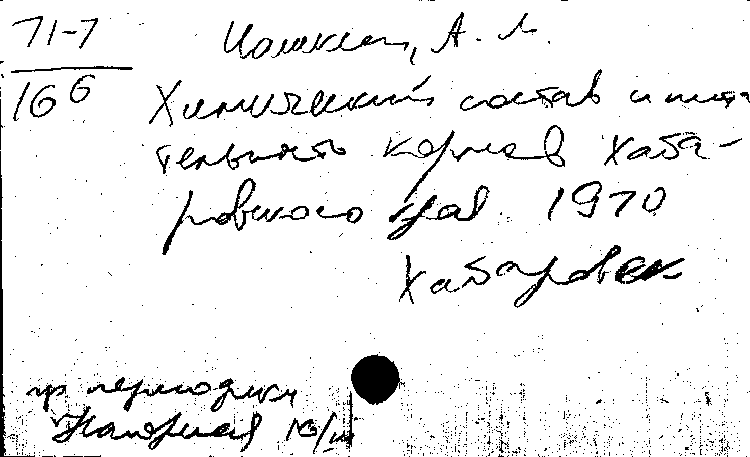 71-7
166
А. М.
Химический состав и пита-
тельность кормов Хаба-
ровского края. 1970
Хабаровск
гр периодики
16/III